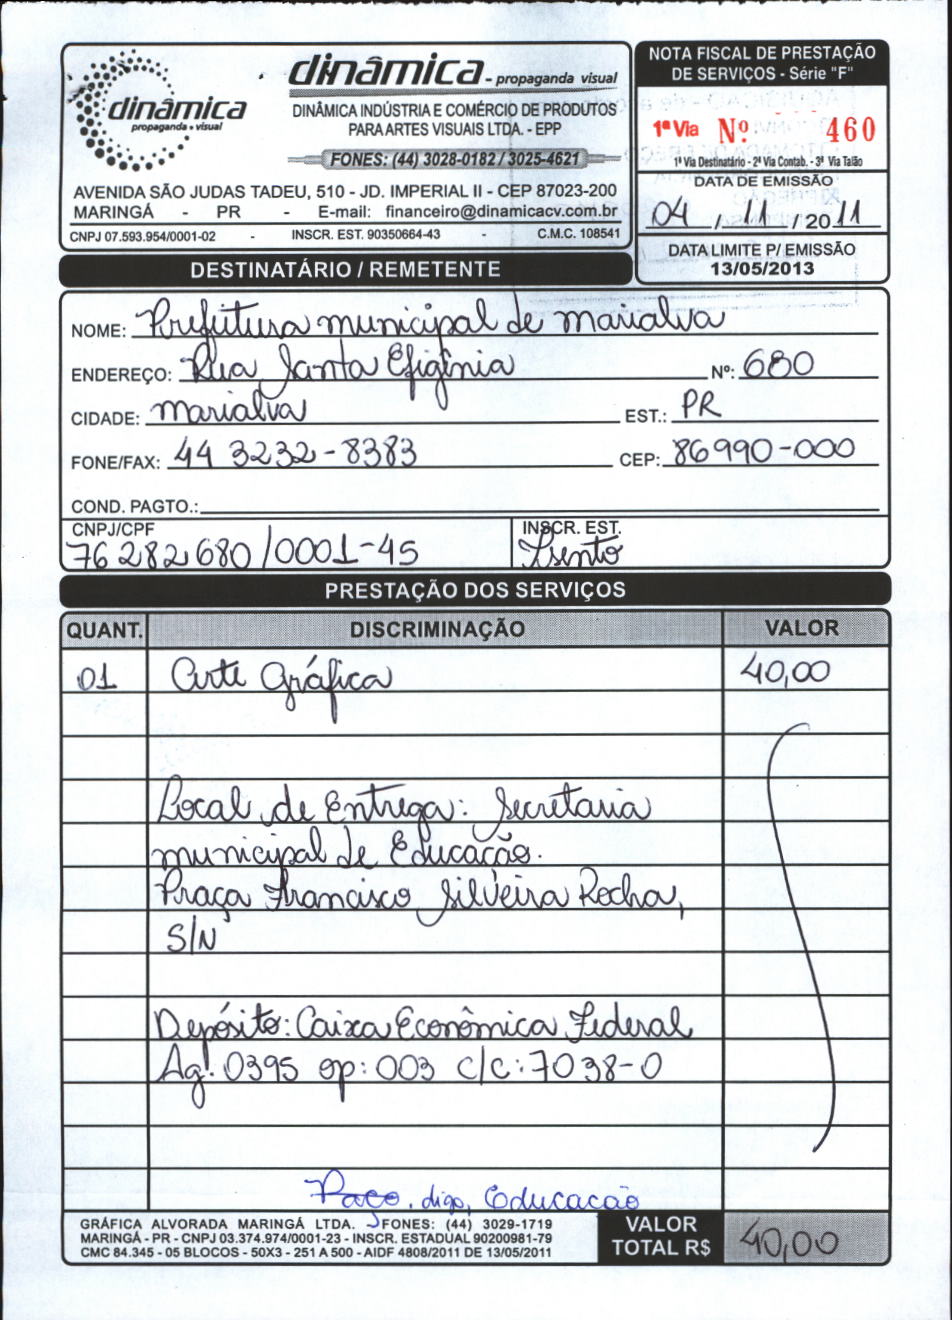 dinâmica
propaganda • visual
dinâmica - propaganda visual
DINÂMICA INDÚSTRIA E COMÉRCIO DE PRODUTOS
PARA ARTES VISUAIS LTDA. - EPP
FONES: (44) 3028-0182 / 3025-4621
AVENIDA SÃO JUDAS TADEU, 510 - JD. IMPERIAL II - CEP 87023-200
MARINGÁ - PR - E-mail: financeiro@dinamicacv.com.br
CNPJ 07.593.954/0001-02 - INSCR. EST. 90350664-43 - C.M.C. 108541
NOTA FISCAL DE PRESTAÇÃO
DE SERVIÇOS - Série "F"
1ª Via Nº 460
1ª Via Destinatário - 2ª Via Contab. - 3ª Via Talão
DATA DE EMISSÃO
04 / 11 / 2011
DATA LIMITE P/ EMISSÃO
13/05/2013
DESTINATÁRIO / REMETENTE
NOME: Prefeitura municipal de marialva
ENDEREÇO: Rua Santa Efigênia Nº: 680
CIDADE: marialva EST.: PR
FONE/FAX: 44 3232-8383 CEP: 86990-000
COND. PAGTO.:
CNPJ/CPF INSCR. EST.
76 282 680/0001-45 Isento
PRESTAÇÃO DOS SERVIÇOS
QUANT. DISCRIMINAÇÃO VALOR
01 Arte Gráfica 40,00
Local de Entrega: Secretaria
municipal de Educação.
Praça Francisco Silveira Rocha,
S/N
Depósito: Caixa Econômica Federal
Ag: 0395 op: 003 c/c: 7038-0
Paço, digo, Educação
GRÁFICA ALVORADA MARINGÁ LTDA. FONES: (44) 3029-1719
MARINGÁ - PR - CNPJ 03.374.974/0001-23 - INSCR. ESTADUAL 90200981-79
CMC 84.345 - 05 BLOCOS - 50X3 - 251 A 500 - AIDF 4808/2011 DE 13/05/2011
VALOR
TOTAL R$ 40,00